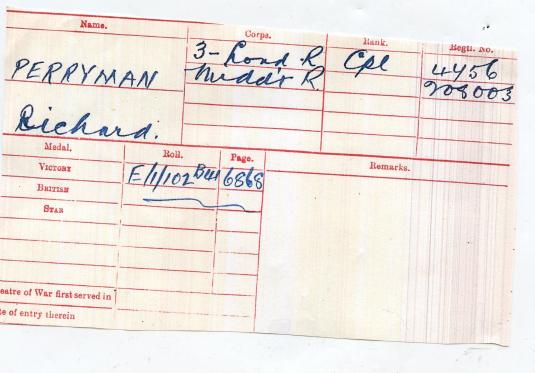 Name. Corps. Rank. Regtl. No.
3-Lond R Cpl 4456
PERRYMAN Midd'x R. 208003
Richard.
Medal. Roll. Page. Remarks.
VICTORY E/1/102 B41 6868
BRITISH
STAR
eatre of War first served in
te of entry therein